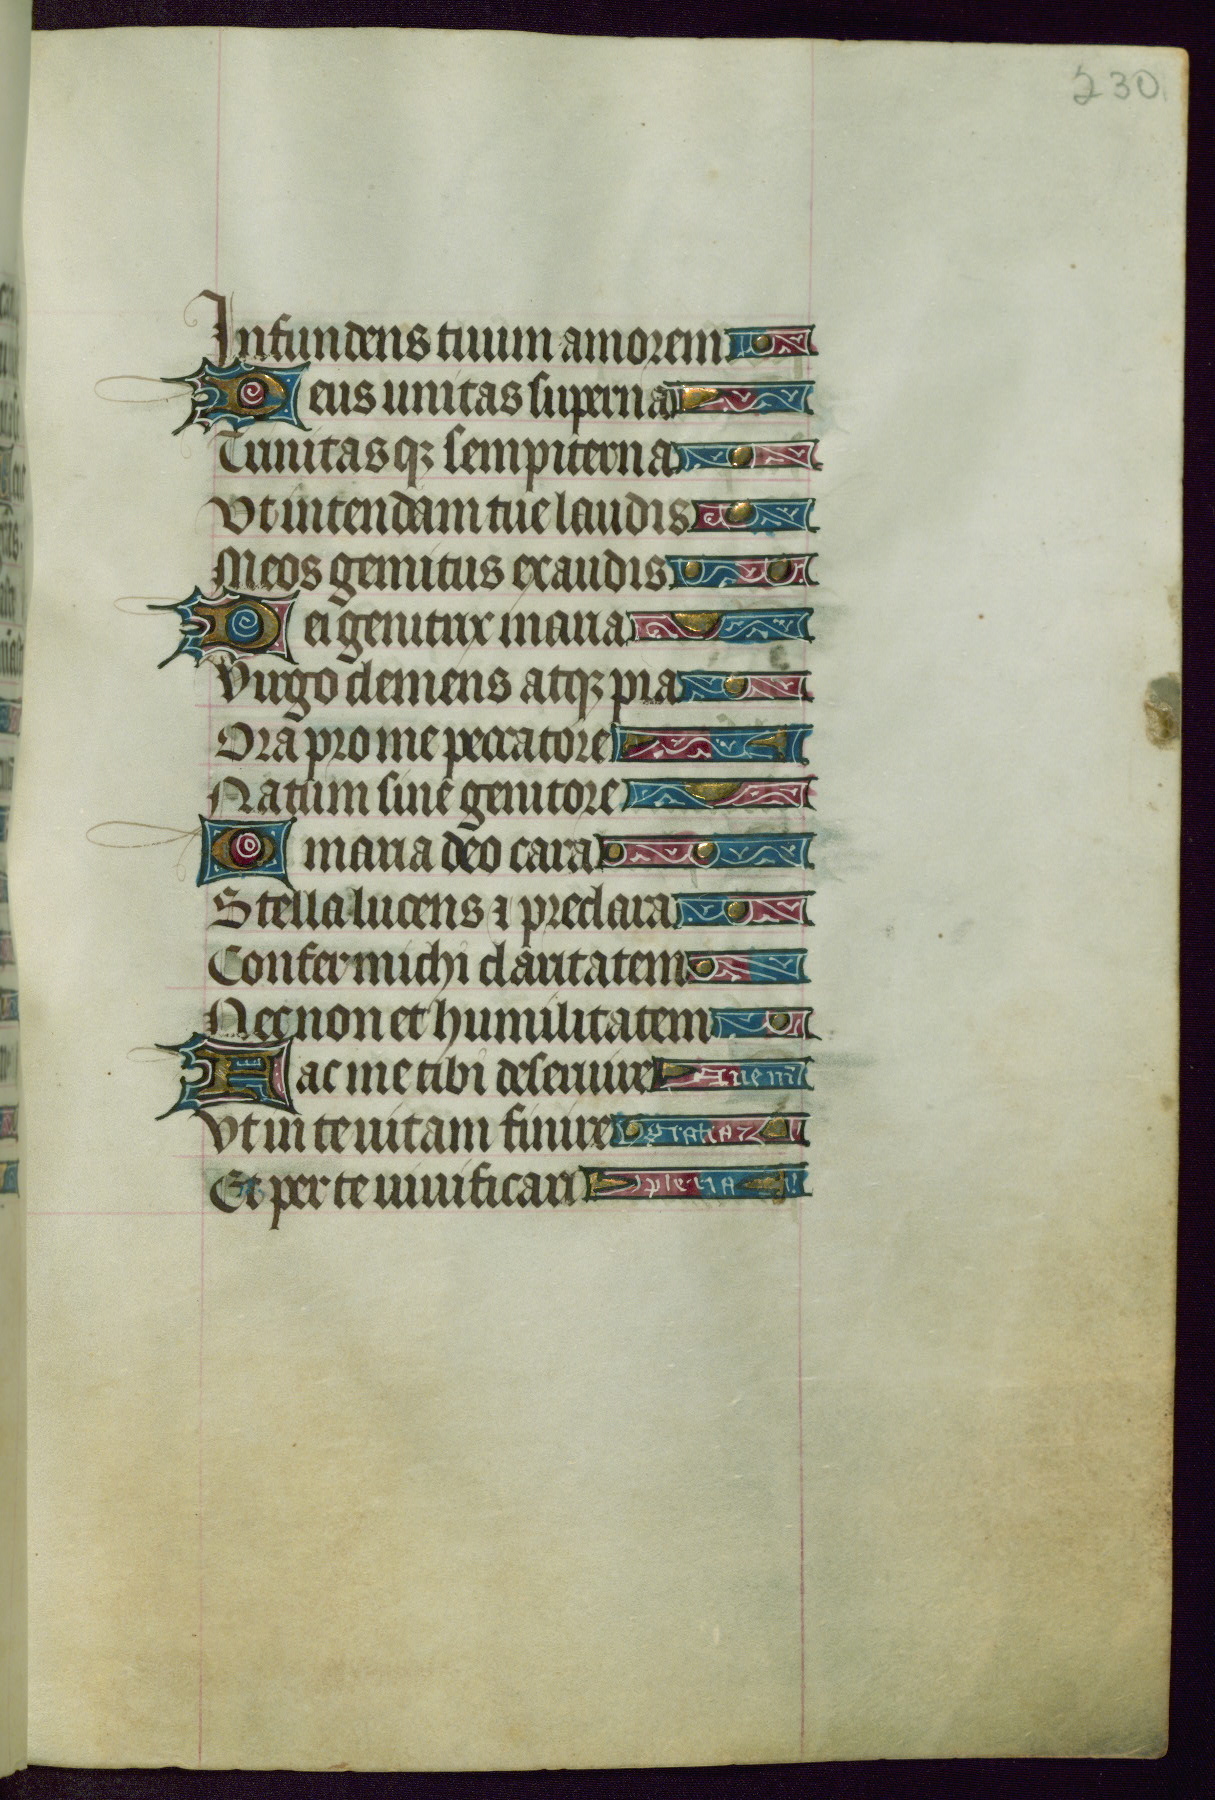 230
Infundens tuum amorem
Deus unitas superna
Trinitasqꝫ sempiterna
Vt intendam tue laudis
Meos gemitus exaudis
Dei genitrix maria
Virgo clemens atqꝫ pia
Ora pro me peccatore
Natum sine genitore
O maria deo cara
Stella lucens ⁊ preclara
Confer michi claritatem
Necnon et humilitatem
Fac me tibi deseruire Auem
Vt in te uitam finire gratia
Et per te uiuificari plena